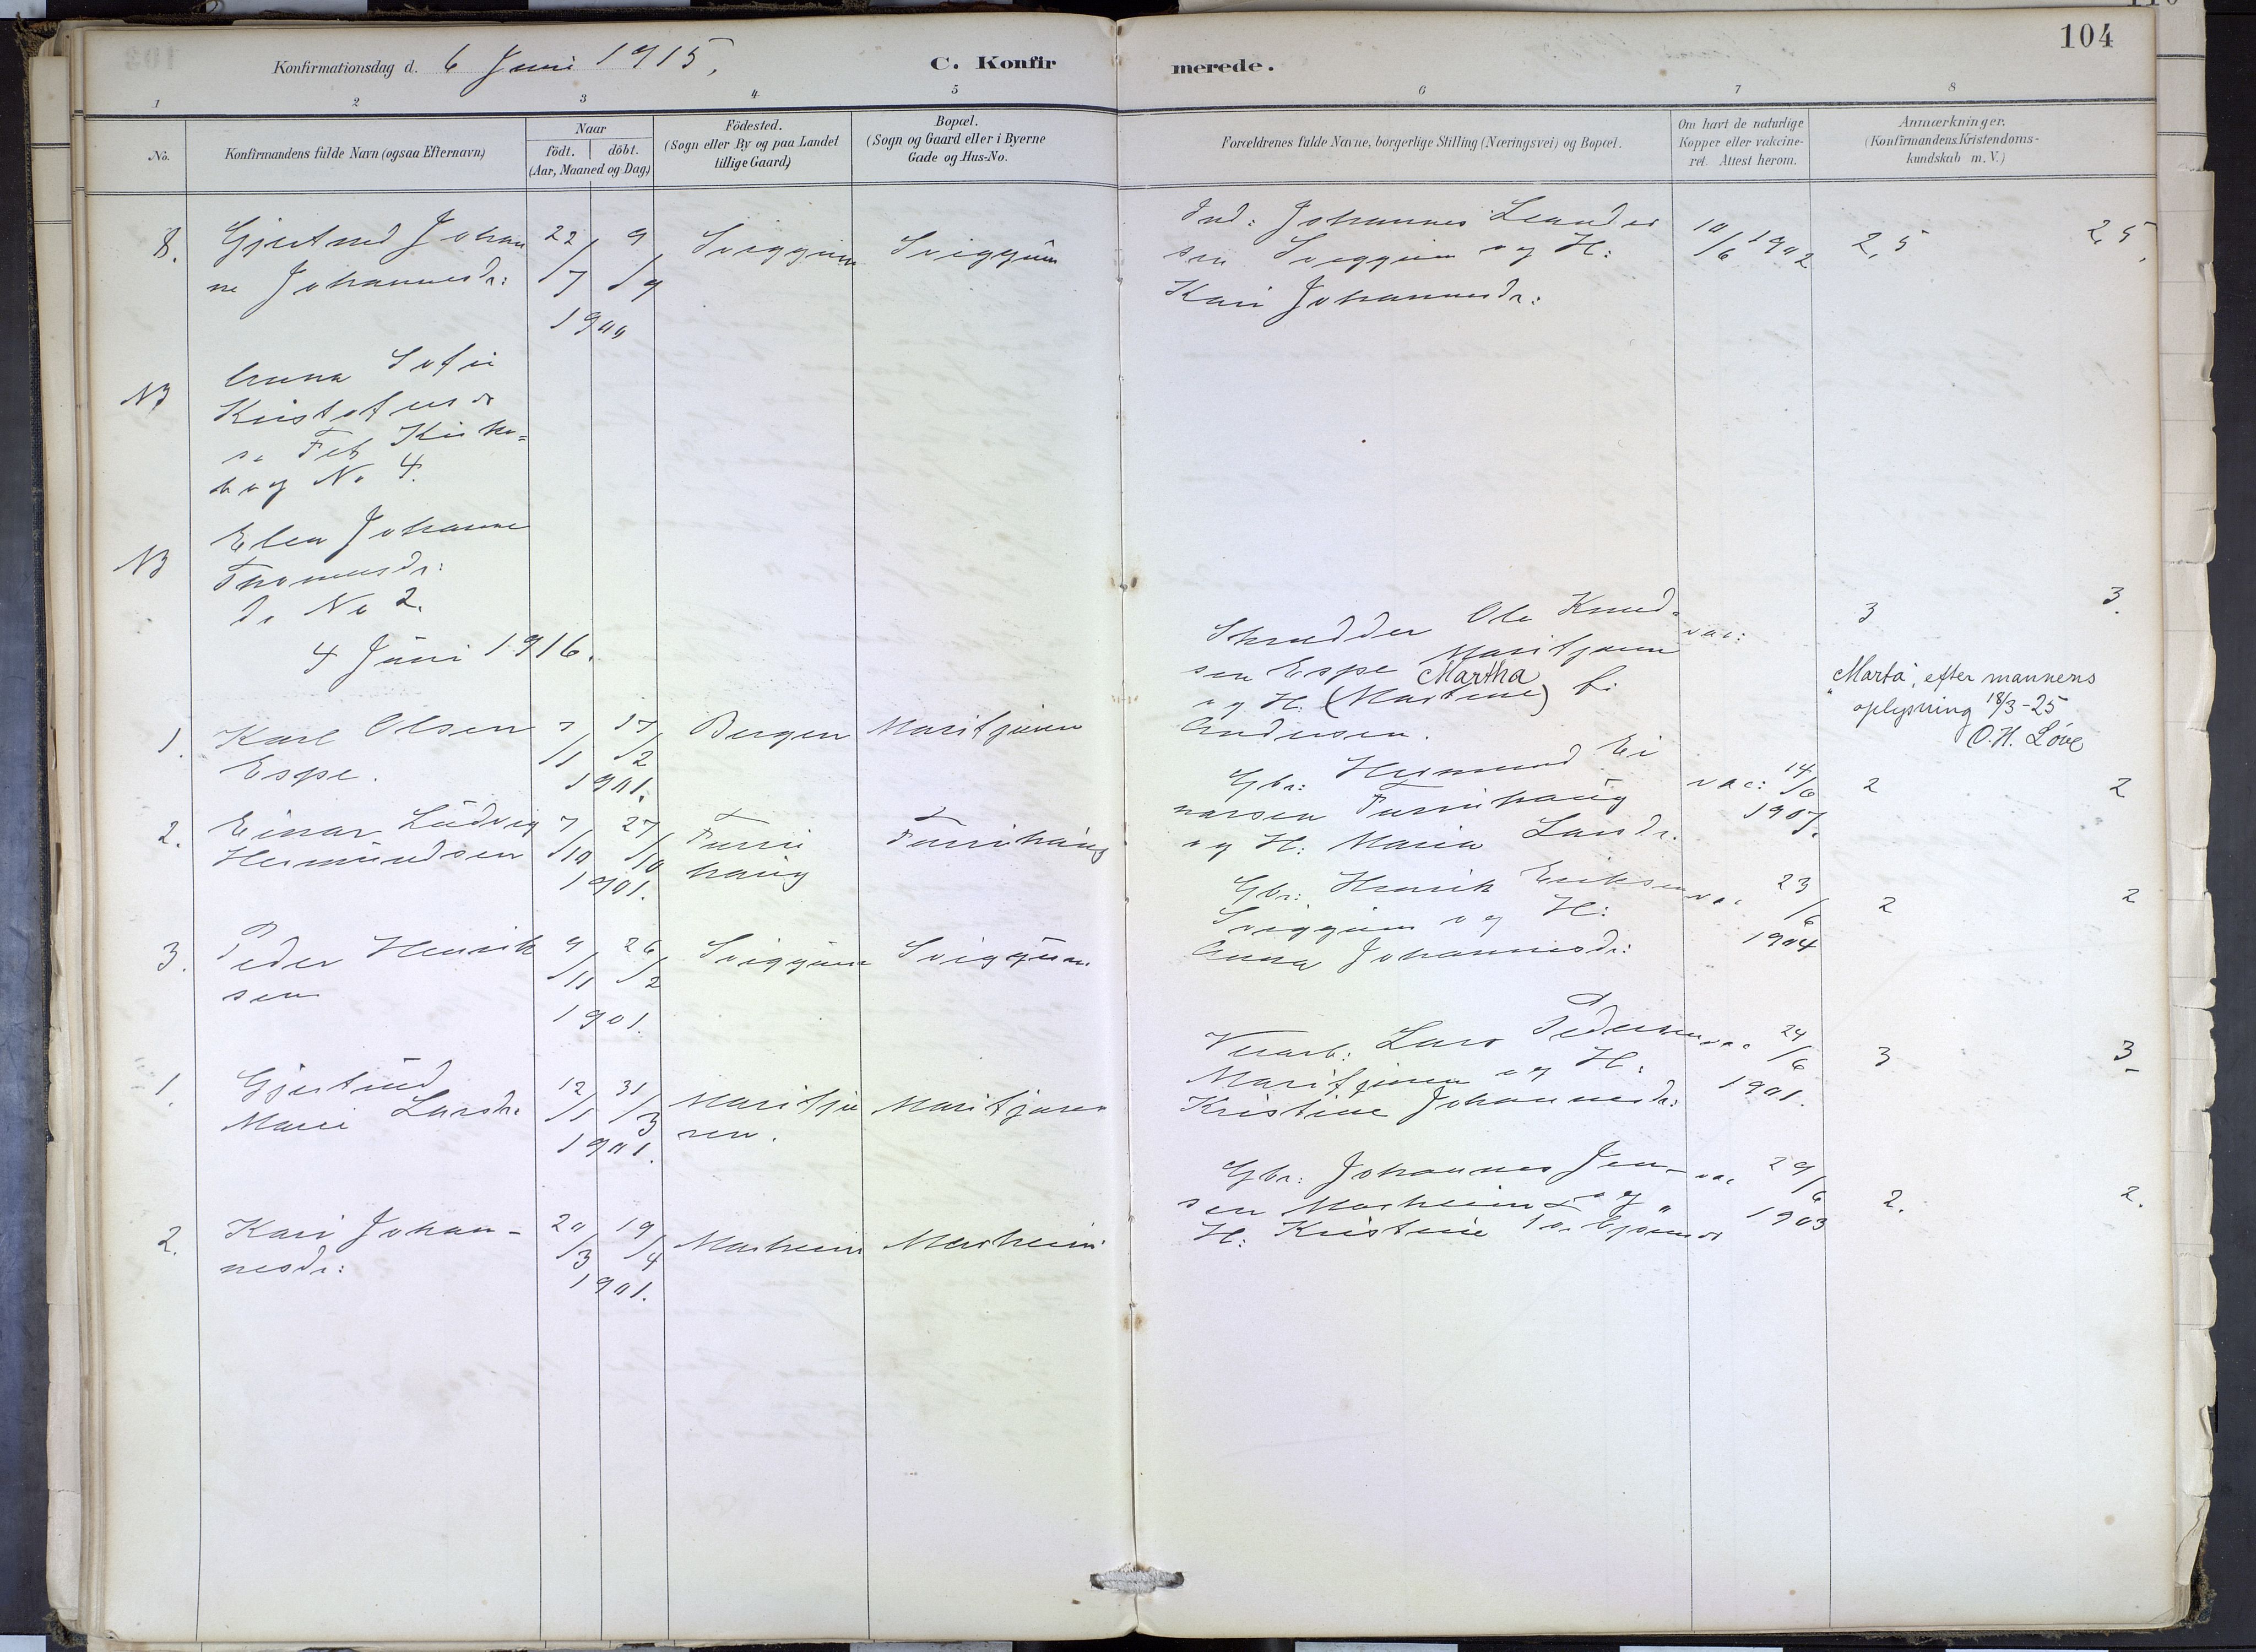 104
Konfirmationsdag d. 6 Juni 1915.
C. Konfirmerede.
1 2 3 4 5 6 7 8
No.
Konfirmandens fulde Navn (ogsaa Efternavn)
Naar
födt. döbt.
(Aar, Maaned og Dag)
Födested.
(Sogn eller By og paa Landet
tillige Gaard)
Bopæl.
(Sogn og Gaard eller i Byerne
Gade og Hus-No.
Forældrenes fulde Navne, borgerlige Stilling (Næringsvei) og Bopæl.
Om havt de naturlige
Kopper eller vakcine-
ret. Attest herom.
Anmærkninger.
(Konfirmandens Kristendoms-
kundskab m. V.)
8. Gjertrud Johan
ne Johannesdr:
22/7 9/9
1900
Sviggum Sviggum
Ind: Johannes Leander
sen Sviggum og H:
Kari Johannesdr:
10/6 1902
2,5 2,5
NB Anna Sofie
Kristofersdr
Fet Kirke-
bog No 4.
NB Elen Johanne
Thomasdr:
do No 2.
4 Juni 1916.
1. Karl Olsen
Espe.
7/1 17/2
1901.
Bergen Maritjuren
Skrædder Ole Knud-
sen Espe Maritjuren
Martha
og H. (Martine)
Andersen.
vac:
3 3.
"Marta", efter mannens
oplysning 18/3-25
O.H. Löve
2. Einar Ludvig
Hermundsen
7/10 27/10
1901.
Furru
haug
Furruhaug
Gbr: Hermund Ei
narsen Furruhaug
og H: Maria Larsdr.
vac: 14/6
1907.
2 2
3. Peder Henrik
sen
9/11 26/2
1901.
Sviggum Sviggum
Gbr: Henrik Eriksen
Sviggum og H:
Anna Johannesdr:
vac 23/6
1904
2 2
1. Gjertrud
Marie Larsdr.
12/1 31/3
1901.
Maritju
ren.
Maritjuren
Lars Pedersen
Maritjuren og H:
Kristine Johannesdr:
vac 24/6
1901.
3 3
2. Kari Johan-
nesdr:
20/3 19/4
1901.
Marheim Marheim
Gbr: Johannes Jen-
sen Marheim og
H: Kristine Torbjørnsdr
vac 29/6
1903
2. 2.